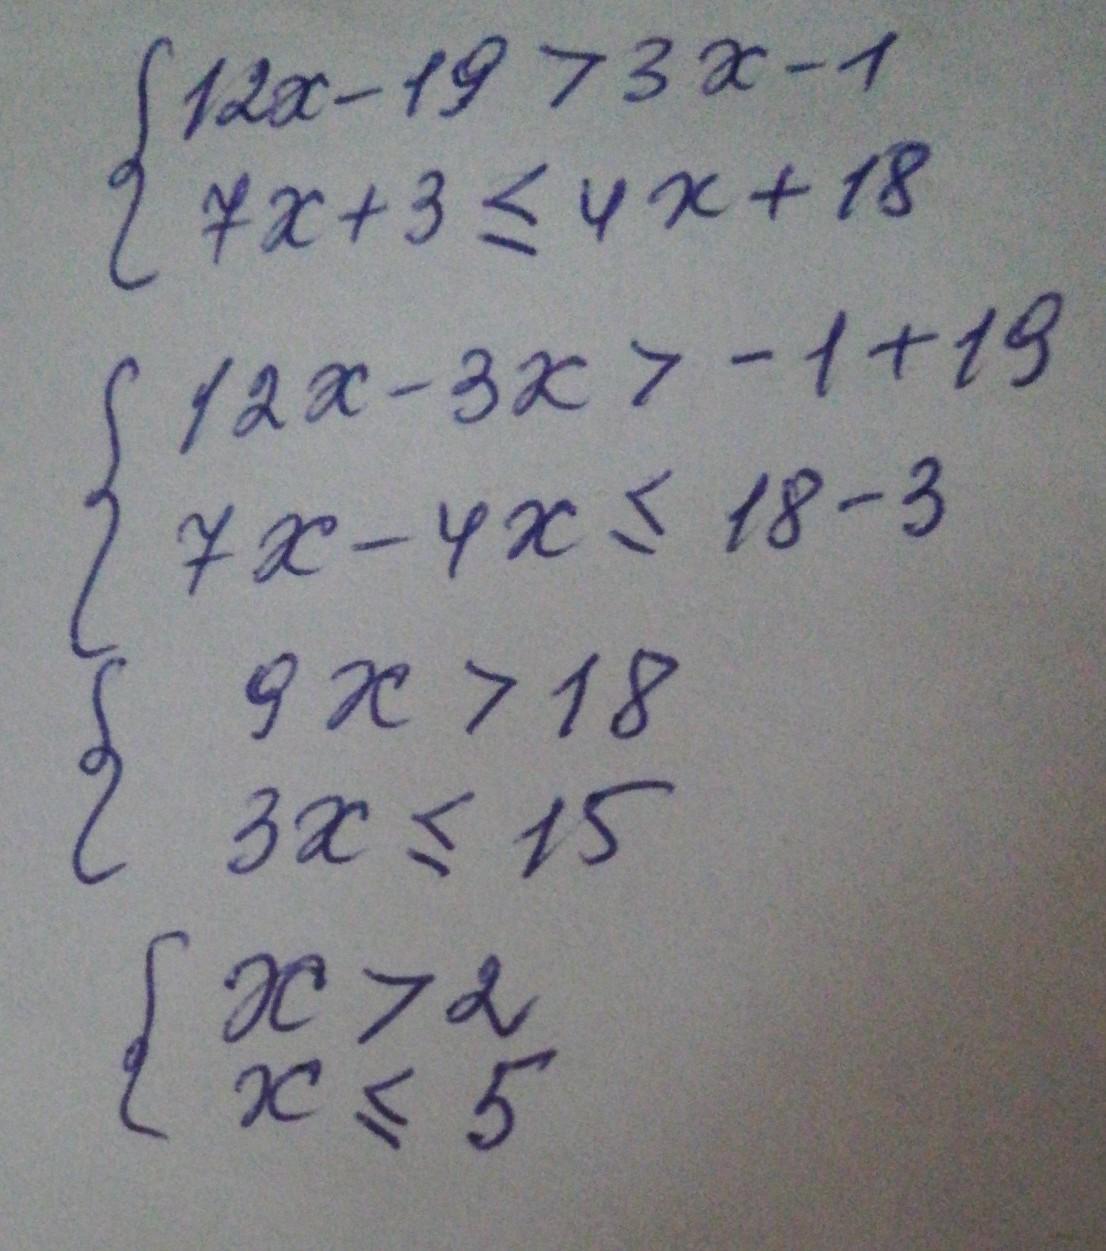 12x-19 > 3x-1
7x+3 ≤ 4x+18
12x-3x > -1+19
7x-4x ≤ 18-3
9x > 18
3x ≤ 15
x > 2
x ≤ 5